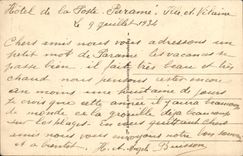 Hôtel de la Poste Paramé. Ille et Vilaine
le 9 juillet 1934
Chers amis nous vous adressons un
petit mot de Paramé les vacances se
passe bien il fait très beau et très
chaud nous pensons rester encore
au moins une huitaine de jours
Je crois que cette année il y aura beaucoup
de monde cela grouille déjà beaucoup
sur les plages. En vous quittant chers
amis nous vous envoyons notre bon souvenir
et a bientôt. H. Buisson